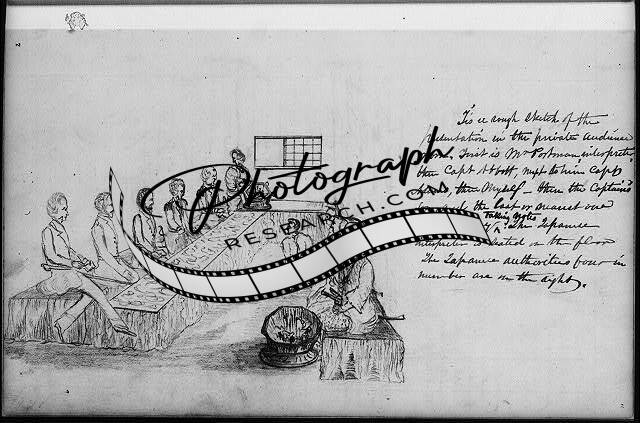 Tis a rough sketch of the
presentation in the private audience
First is Mr Portman interpreter
then Capt Abbott, next to him Capt
then Myself - then the Captain's
the last or nearest one
taking notes
The Japanese
interpreter is seated on the floor
The Japanese authorities four in
number are on the right.
Photograph
RESEARCH.COM